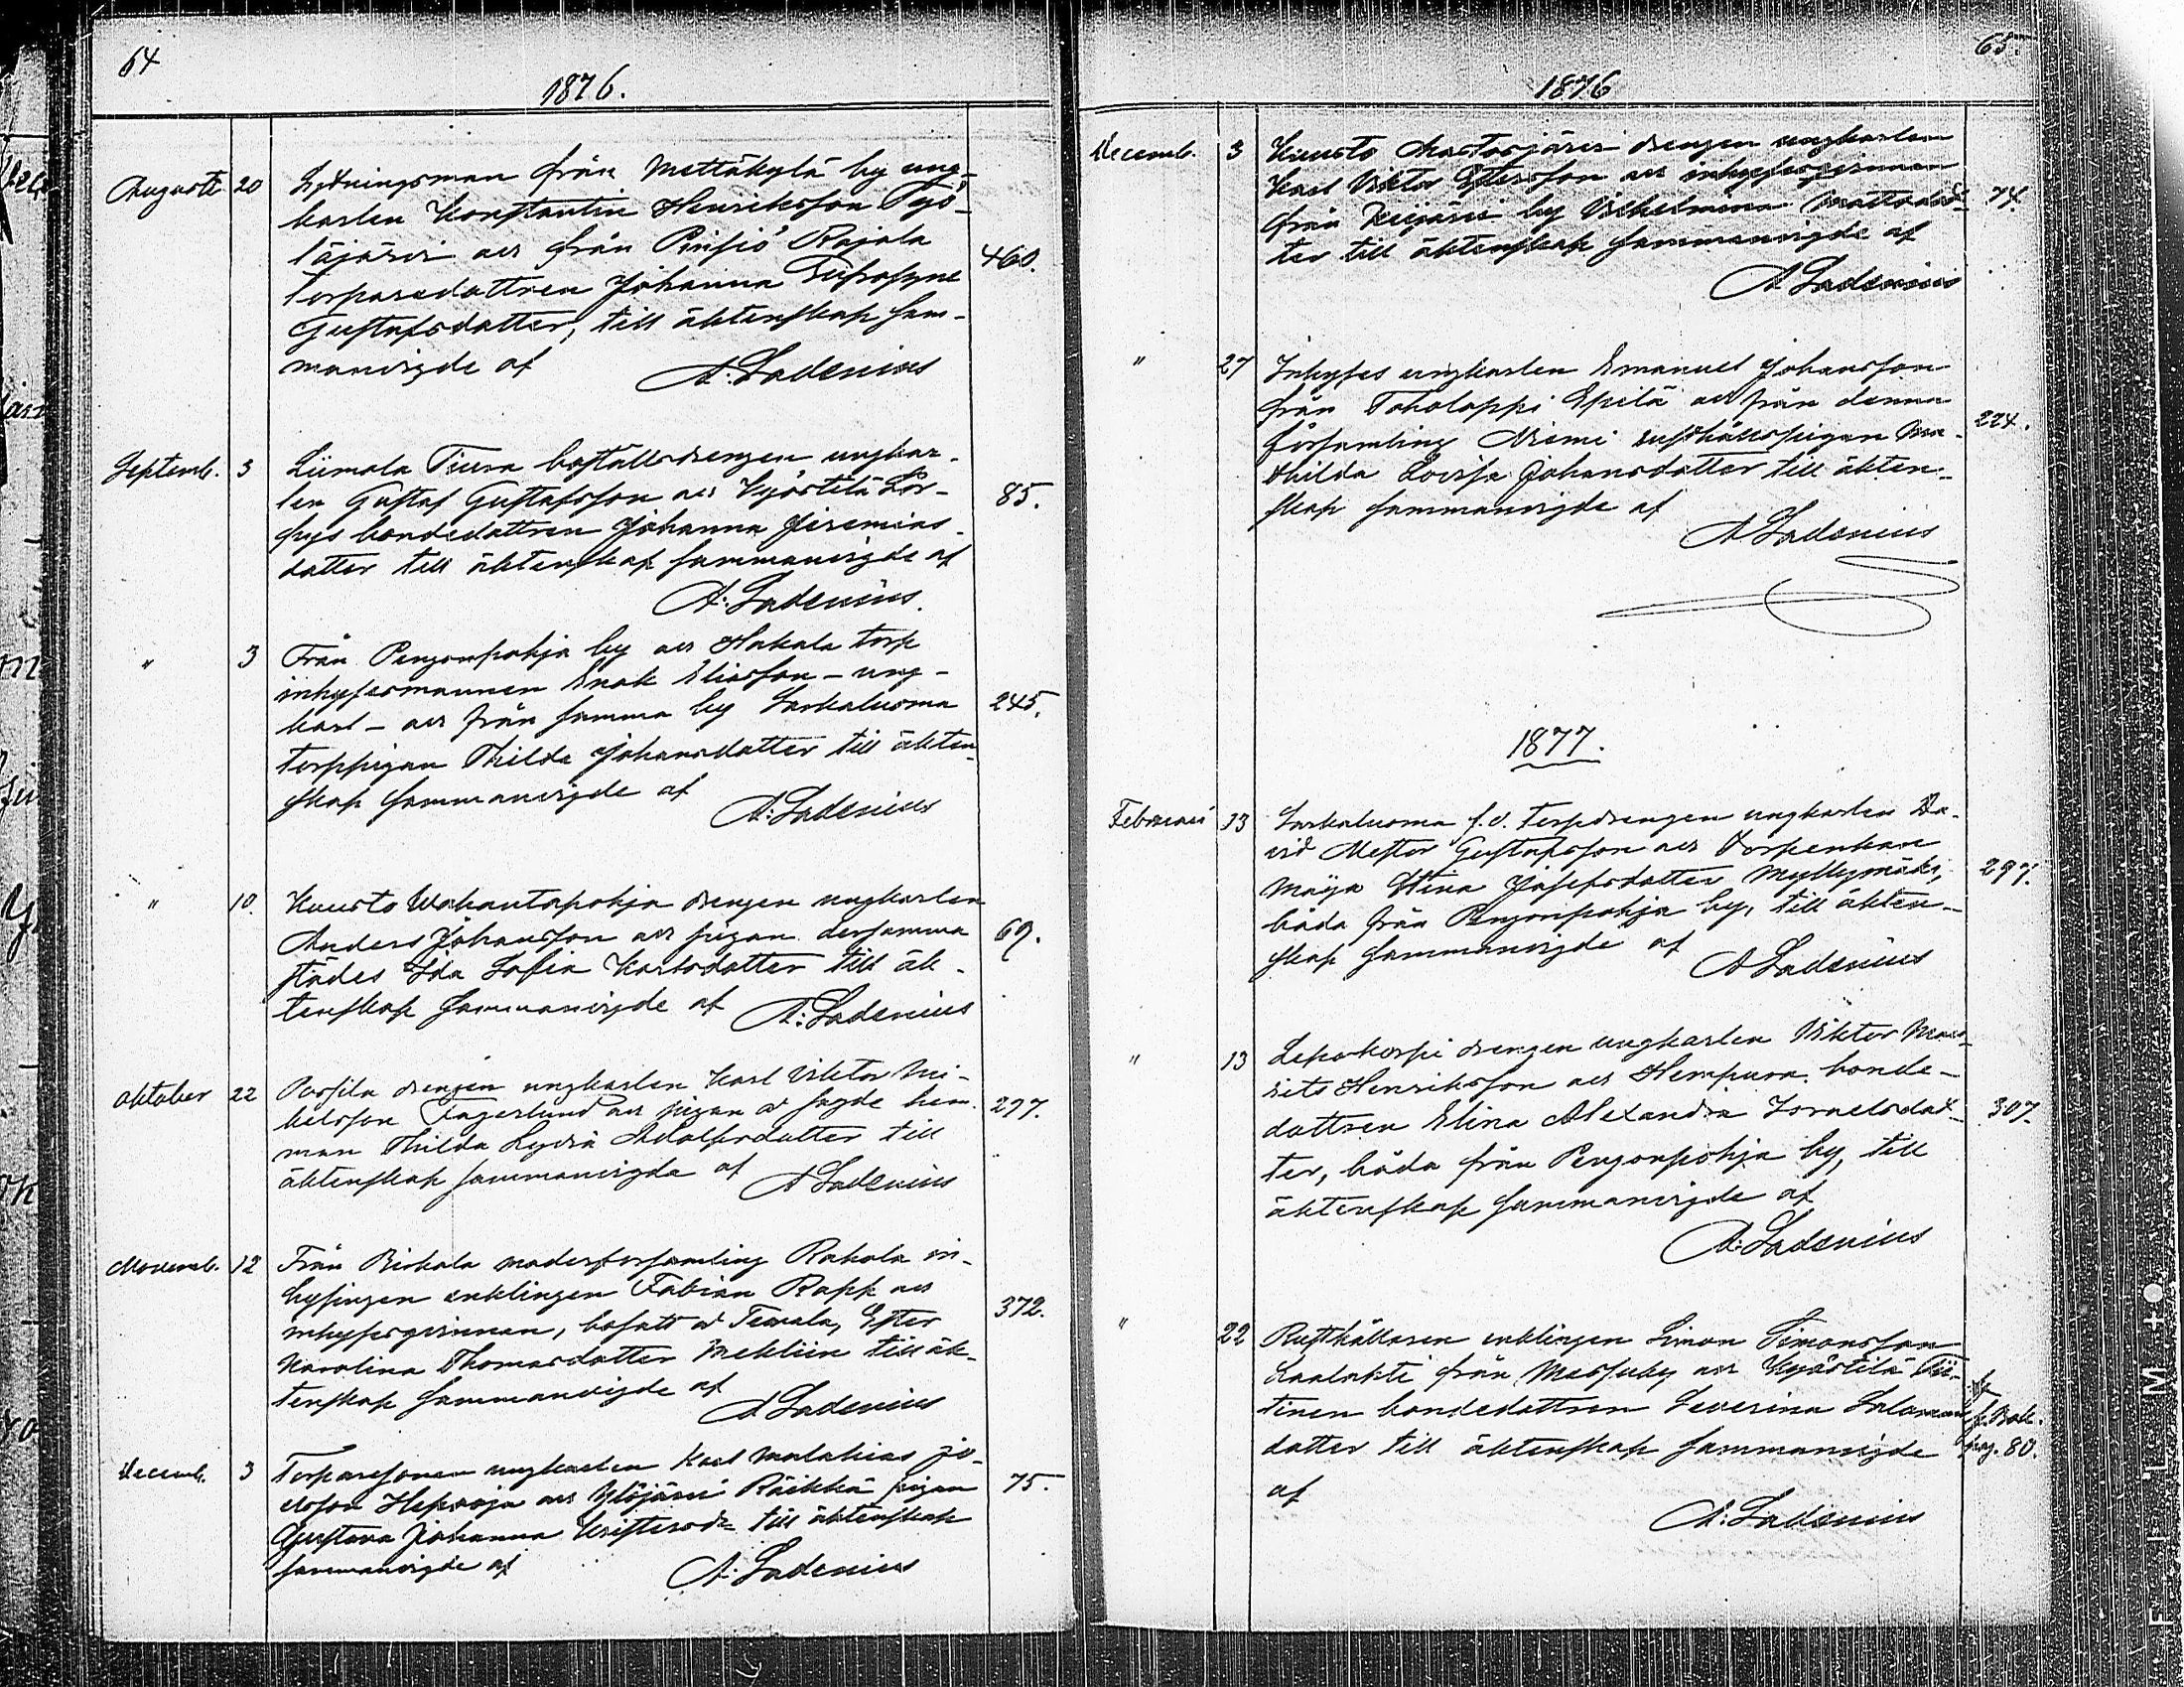 64
1876.
Augusti 20 Lydningsman från Mettäkylä by ung-
karlen Konstantin Henriksson Pyö-
läjärvi och från Pinsiö Rajala
torparedottren Johanna Eufrosyne
Gustafsdotter, till äktenskap sam- 460.
manvigde af A. Ladenius
Septemb. 3 Liimola Tiura boställsdrengen ungkar-
len Gustaf Gustafsson och Kyöstilä Lör-
pys bondedottren Johanna Jeremias- 85.
dotter till äktenskap sammanvigde af
A. Ladenius.
" 3 Från Pengonpohja by och Hakala torp
inhysesmannen Enok Eliasson - ung-
karl - och från samma by Sarkaluoma 245.
torppigan Thilda Johansdotter till äkten-
skap sammanvigde af
A. Ladenius
" 10. Kuusto Wahantapohja drengen ungkarlen
Anders Johansson och pigan dersamma- 69.
städes Ida Sofia Karlsdotter till äk-
tenskap sammanvigde af A. Ladenius
Oktober 22 Passila drengen ungkarlen Karl Viktor Mi-
kelsson Fagerlund och pigan å sagde hem- 297.
man Thilda Lydia Adolfsdotter till
äktenskap sammanvigde af A Ladenius
Novemb. 12 Från Birkala moderförsamling Rahola in-
hysingen enklingen Fabian Rapp och
inhysesqvinnan, bosatt å Teivala, Ester 372.
Karolina Thomasdotter Mekliin till äk-
tenskap sammanvigde af
A Ladenius
Decemb. 3 Torparesonen ungkarlen Karl Malakias Jo-
elsson Heporoja och Ylöjärvi Räikkä pigan 75.
Gustava Johanna Kristersdr till äktenskap
sammanvigde af A. Ladenius
65.
1876
Decemb. 3 Kuusto Mastosjärvi drengen ungkarlen
Karl Viktor Gustafsson och inhysesqvinnan
från Keijärvi by Vilhelmina Mattsdot- 74.
ter till äktenskap sammanvigde af
A Ladenius
" 27 Inhyses ungkarlen Emanuel Johansson
från Toholappi Epilä och från denna
församling Niemi rusthållspigan Ma- 224.
thilda Lovisa Johansdotter till äkten-
skap sammanvigde af
A Ladenius
1877.
Februari 13 Sarkaluoma f.d. torpdrengen ungkarlen Da-
vid Nestor Gustafsson och torpenkan
Maija Stina Josefsdotter Myllymäki, 297.
båda från Pengonpohja by, till äkten-
skap sammanvigde af A Ladenius
" 13 Lepokorpi drengen ungkarlen Viktor Mau-
rits Henriksson och Hempura bonde-
dottren Elina Alexandra Israelsdot- 307.
ter, båda från Pengonpohja by, till
äktenskap sammanvigde af
A. Ladenius
" 22 Rusthållaren enklingen Simon Simonsson
Kaalahti från Massuby och Kyöstilä Tii-
tinen bondedottren Severina Salomons-
dotter till äktenskap sammanvigde pag. 80.
af
A. Ladenius